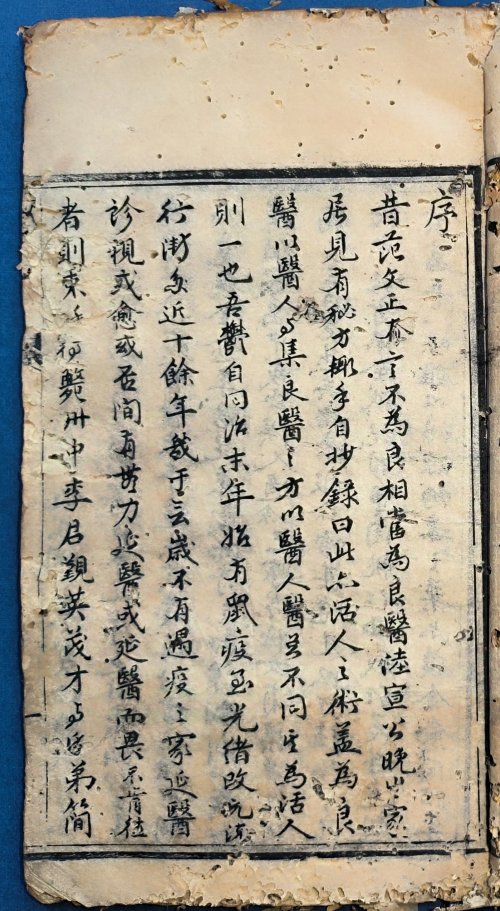 序
昔范文正有言不為良相當為良醫陸宣公晚年家
居見有秘方輒手自抄錄曰此亦活人之術蓋為良
醫以醫人與集良醫之方以醫人醫並不同其為活人
則一也吾鬱自同治末年始有鼠疫至光緒改元流
行漸多近十餘年幾于無歲不有遇疫之家延醫
診視或愈或否間有無力延醫或延醫而畏忌不肯徃
者則束手 斃卅中李君覲英茂才與 弟簡